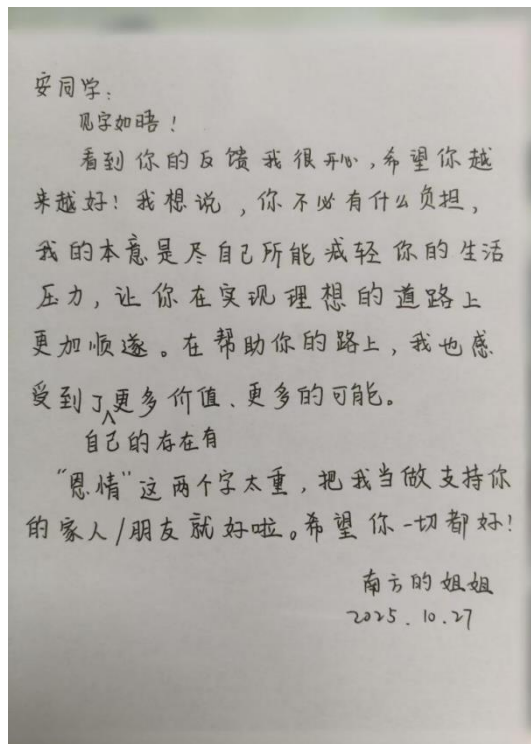 安同学:
见字如晤!
看到你的反馈我很开心,希望你越
来越好!我想说,你不必有什么负担,
我的本意是尽自己所能减轻你的生活
压力,让你在实现理想的道路上
更加顺遂。在帮助你的路上,我也感
受到了更多价值、更多的可能。
自己的存在有
“恩情”这两个字太重,把我当做支持你
的家人/朋友就好啦。希望你一切都好!
南方的姐姐
2025.10.27